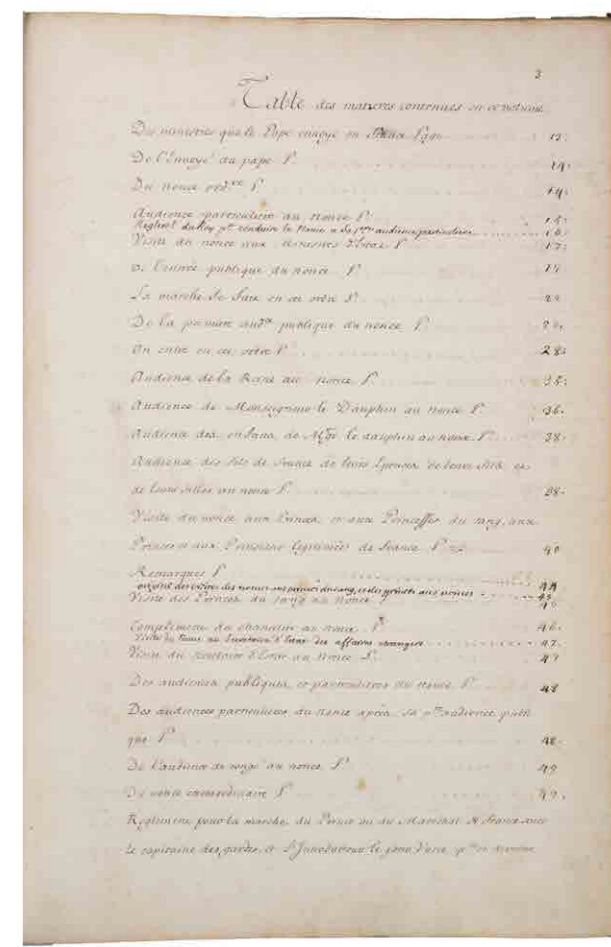 3
Table des matieres contenues en ce volume
Des ministres que le Pape envoye en France P. 13.
De l'Envoyé du pape P. 14.
Du nonce ord.re P. 14.
Audience particuliere au Nonce P. 15.
Reglem.t du Roy p.r conduire le Nonce a sa p.re audience particuliere 16.
Visite du nonce aux Ministres d'Estat P. 17.
De l'entrée publique du nonce P.
La marche se fait en cet ordre P.
De la premiere aud.ce publique du nonce P.
On entre en cet ordre P. 28.
Audience de la Reine au nonce P. 35.
Audience de Monseigneur le Dauphin au nonce P. 36.
Audience des enfans de M.gr le dauphin au nonce P. 38.
Audience des fils de France de leurs Epouses de leurs fils et
de leurs filles au nonce P. 38.
Visite du nonce aux Princes et aux Princesses du sang, aux
Princes et aux Princesses legitimés de France P. 40
Remarques P. 44
des visites des nonces aux princes du sang, et des presents aux nonces 45
Visite des Princes du sang au nonce 46
Compliment du chancelier au nonce P. 46.
Visite du Nonce au Secretaire d'Estat des affaires etrangeres 47.
Visite du secretaire d'Estat au Nonce P. 47
Des audiences publiques et particulieres du nonce P. 48
Des audiences particulieres du Nonce après sa p.re audience publi
que P. 48.
De l'audience de congé au nonce P. 49
Du nonce extraordinaire P. 49.
Reglement pour la marche du Prince ou du Maréchal de france avec
le capitaine des gardes, et l'Introducteur le jour d'une